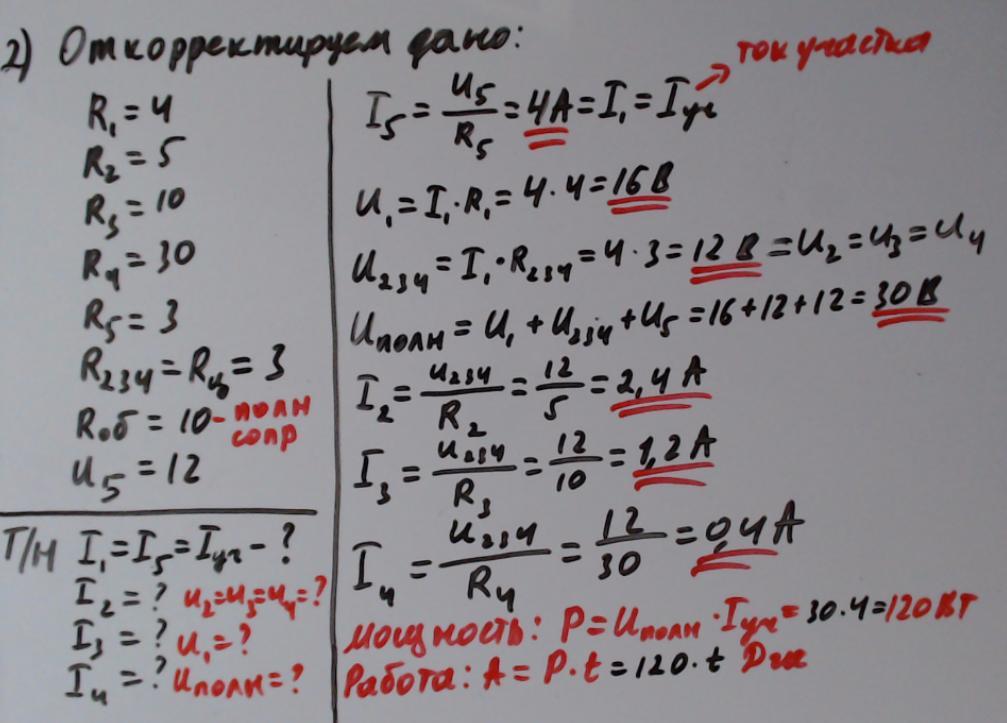 2) Откорректируем дано:
R₁ = 4
R₂ = 5
R₃ = 10
R₄ = 30
R₅ = 3
R₂₃₄ = Rц = 3
Rоб = 10 - полн
сопр
U₅ = 12
Т/Н I₁ = I₅ = Iуч - ?
I₂ = ? U₂=U₃=U₄=?
I₃ = ? U₁=?
I₄ = ? Uполн=?
ток участка
I₅ = U₅/R₅ = 4A = I₁ = Iуч
U₁ = I₁·R₁ = 4·4 = 16 В
U₂₃₄ = I₁·R₂₃₄ = 4·3 = 12 В = U₂ = U₃ = U₄
Uполн = U₁ + U₂₃₄ + U₅ = 16+12+12 = 30 В
I₂ = U₂₃₄/R₂ = 12/5 = 2,4 A
I₃ = U₂₃₄/R₃ = 12/10 = 1,2 A
I₄ = U₂₃₄/R₄ = 12/30 = 0,4 A
Мощность: P = Uполн · Iуч = 30·4 = 120 Вт
Работа: A = P·t = 120·t Дж